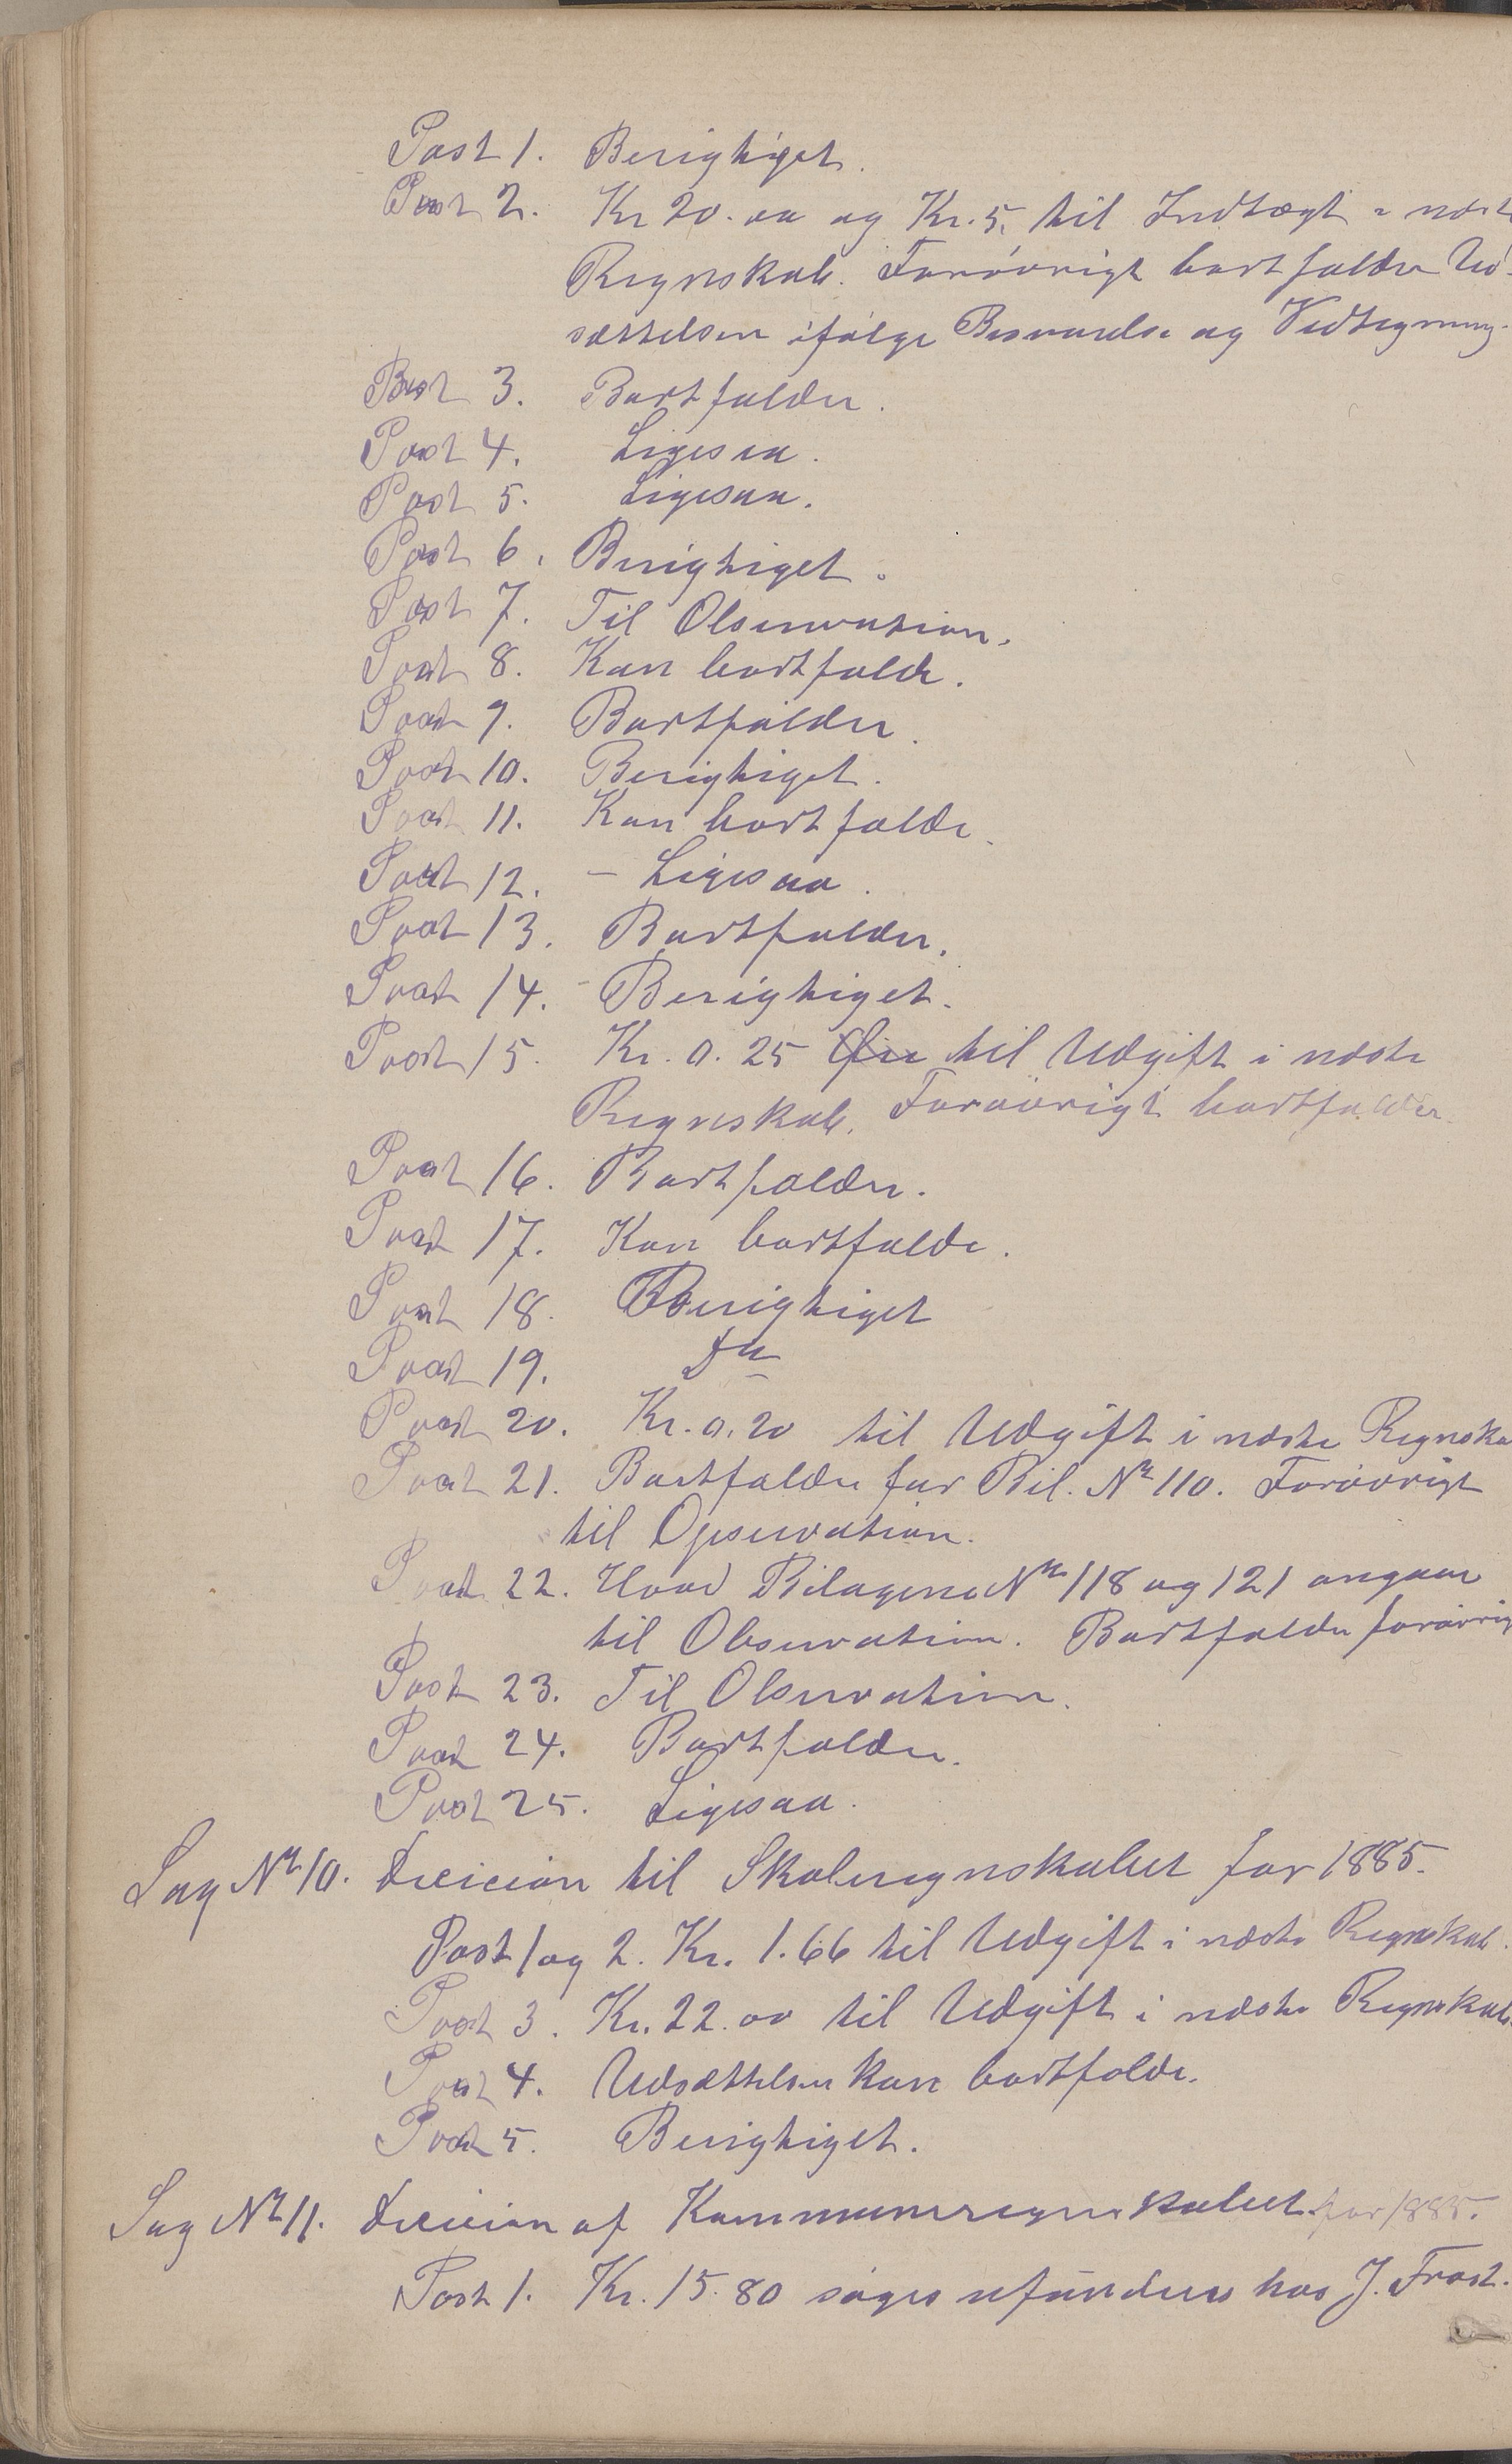 Post 1. Berigtiget.
Post 2. Kr 20.00 og Kr. 5. til Indtægt i næste
Regnskab. Forøvrigt bortfalder Ud-
sættelsen ifølge Besvarelse og Vedtegning.
Post 3. Bortfalder.
Post 4. Ligesaa.
Post 5. Ligesaa.
Post 6. Berigtiget.
Post 7. Til Observation.
Post 8. Kan bortfalde.
Post 9. Bortfalder.
Post 10. Berigtiget.
Post 11. Kan bortfalde.
Post 12. - Ligesaa.
Post 13. Bortfalder.
Post 14. - Berigtiget.
Post 15. Kr. 0.25 til Udgift i næste
Regnskab. Forøvrigt bortfalder.
Post 16. Bortfalder.
Post 17. Kan bortfalde.
Post 18. Berigtiget
Post 19. Do
Post 20. Kr. 0.20 til Udgift i næste Regnska
Post 21. Bortfalder for Bil. Nr 110. Forøvrigt
til Opservation.
Post 22. Hvad Bilagene Nr 118 og 121 angaar
til Observation. Bortfalder forøvrig
Post 23. Til Observation.
Post 24. Bortfalder.
Post 25. Ligesaa.
Sag Nr 10. Decision til Skoleregnskabet for 1885.
Post 1 og 2. Kr. 1.66 til Udgift i næste Regnskab.
Post 3. Kr. 22.00 til Udgift i næste Regnskab.
Post 4. Udsættelsen kan bortfalde.
Post 5. Berigtiget.
Sag Nr 11. Decision af Kommuneregnskabet for 1885.
Post 1. Kr. 15.80 søges refunderes hos J. Frost.